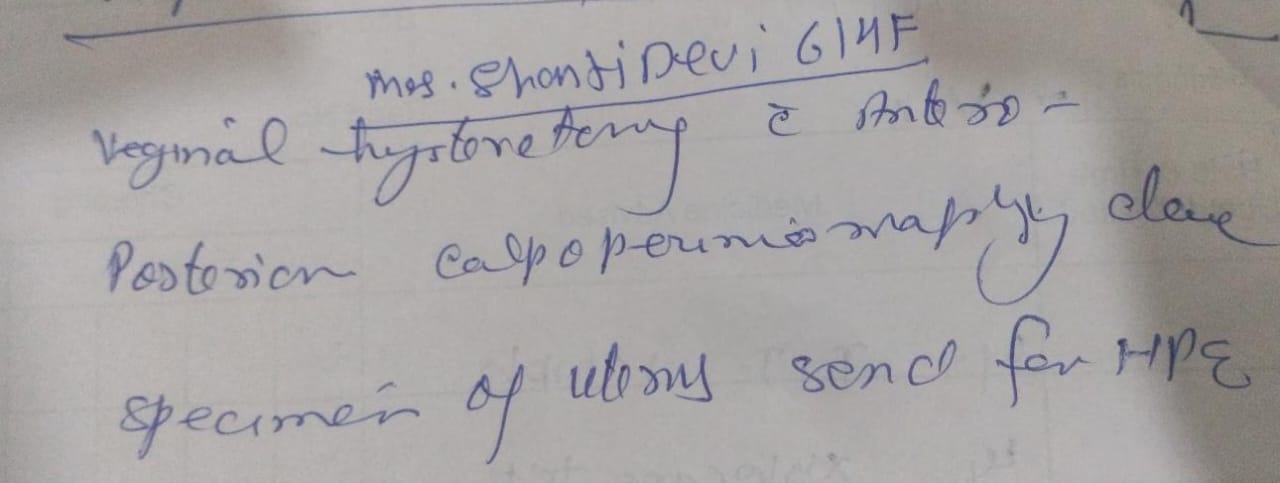 Mrs. Shanti Devi 61Y/F
Veginal hysteretomy c̄ Antero -
Posterior calpoperineomaphy done
specimen of uterus send for HPE